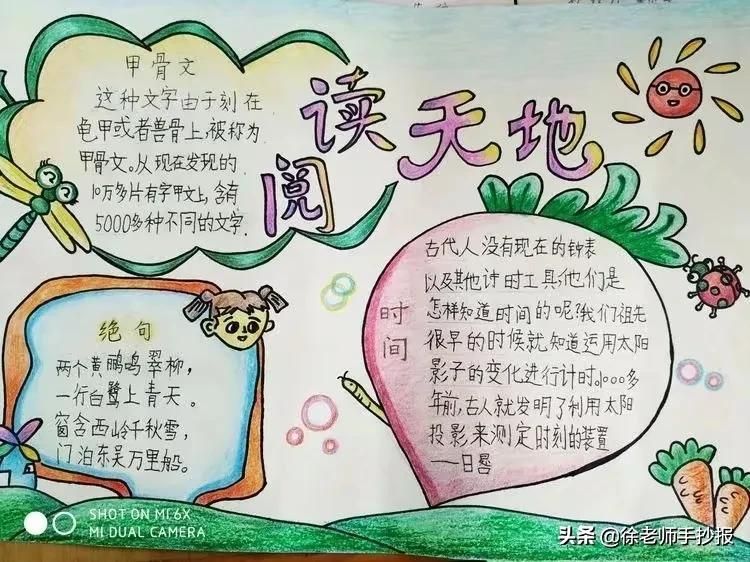 阅读天地
甲骨文
这种文字由于刻在
龟甲或者兽骨上,被称为
甲骨文。从现在发现的
10万多片有字甲文上,含有
5000多种不同的文字.
时间
古代人没有现在的钟表
以及其他计时工具,他们是
怎样知道时间的呢?我们祖先
很早的时候就知道运用太阳
影子的变化进行计时。1000多
年前,古人就发明了利用太阳
投影,来测定时刻的装置
——日晷
绝句
两个黄鹂鸣翠柳,
一行白鹭上青天。
窗含西岭千秋雪,
门泊东吴万里船。
SHOT ON MI 6X
MI DUAL CAMERA
头条 @徐老师手抄报